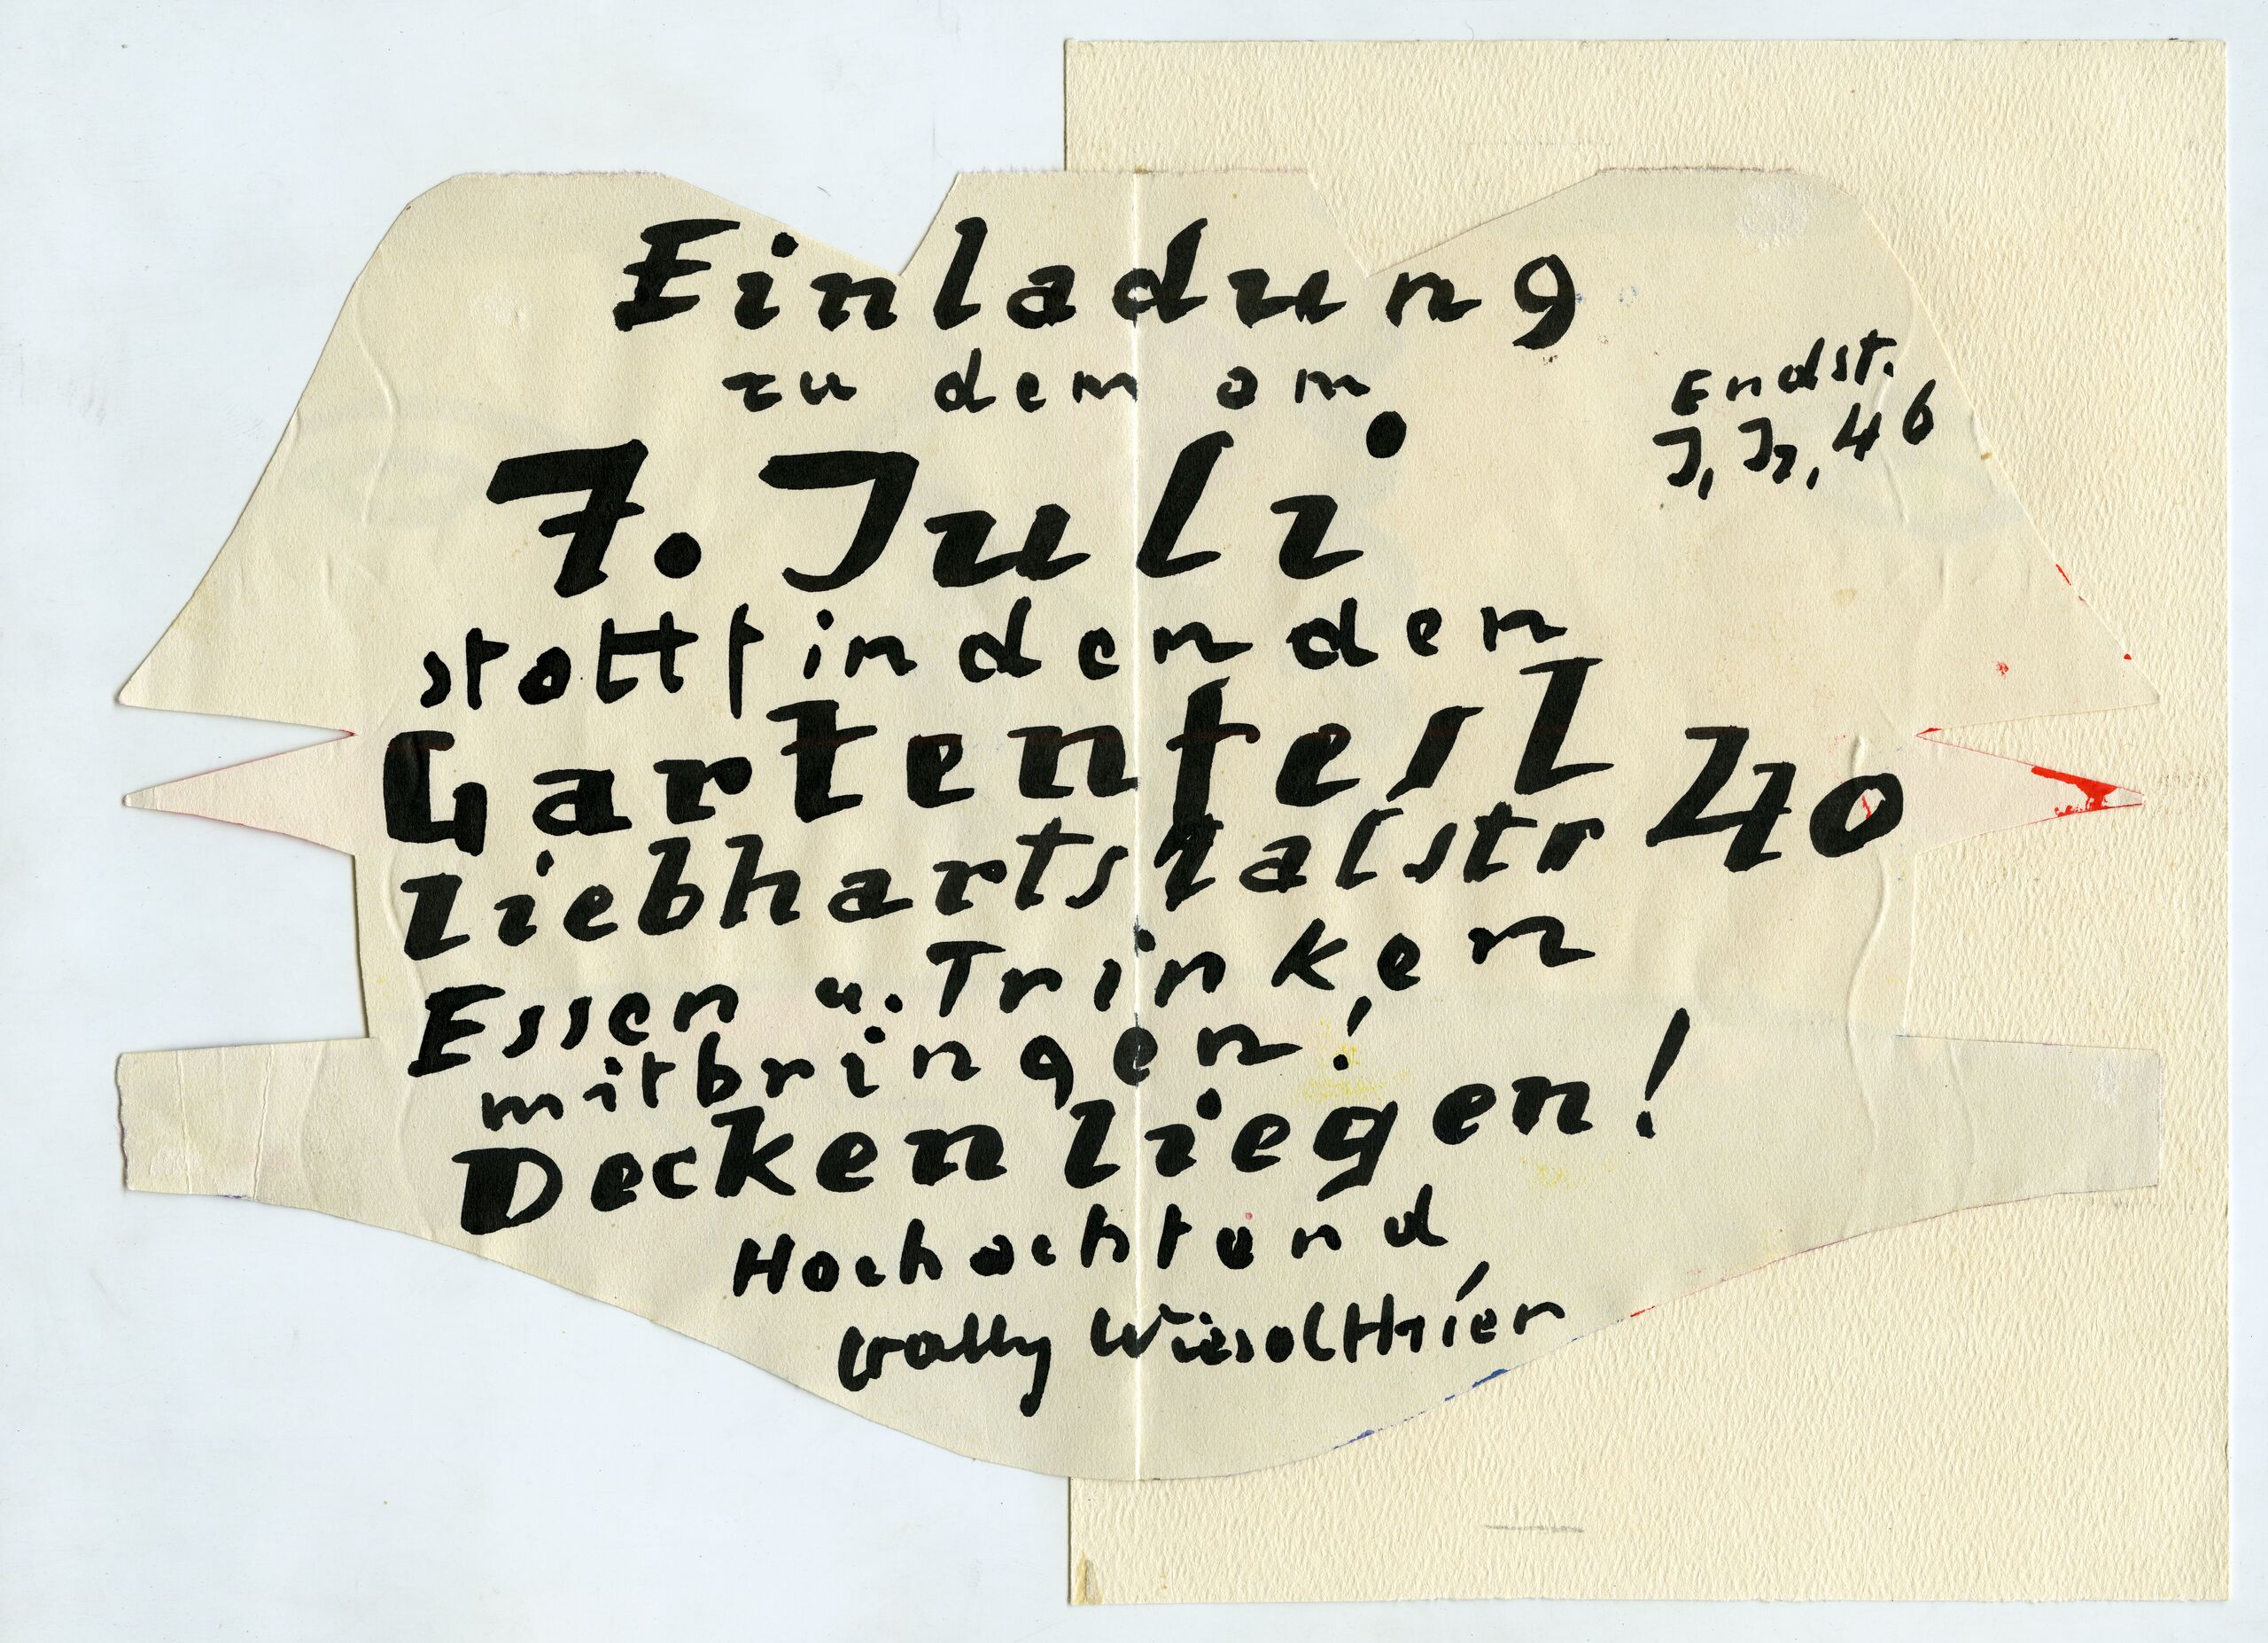 Einladung
zu dem am
7. Juli
stattfindenden
Gartenfest
Liebhartstalstr 40
Essen u. Trinken
mitbringen!
Decken liegen!
Hochachtend
Vally Wieselthier
Endst.
J, J2, 46